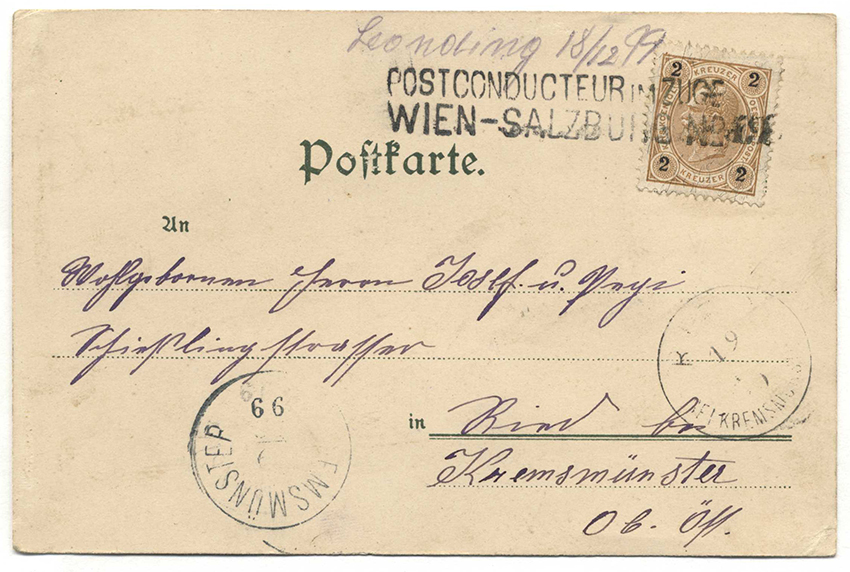 Leonding 18/12 99
POSTCONDUCTEUR IM ZUGE
WIEN-SALZBURG No
2 KREUZER 2
2 KREUZER 2
Postkarte.
An
Wohlgebornen Herrn Josef. u. Pepi
Schießlingstrasser
in Ried bei
Kremsmünster
Ob. Öst.
19
BEI KREMSMÜNST
99
EMSMÜNSTER